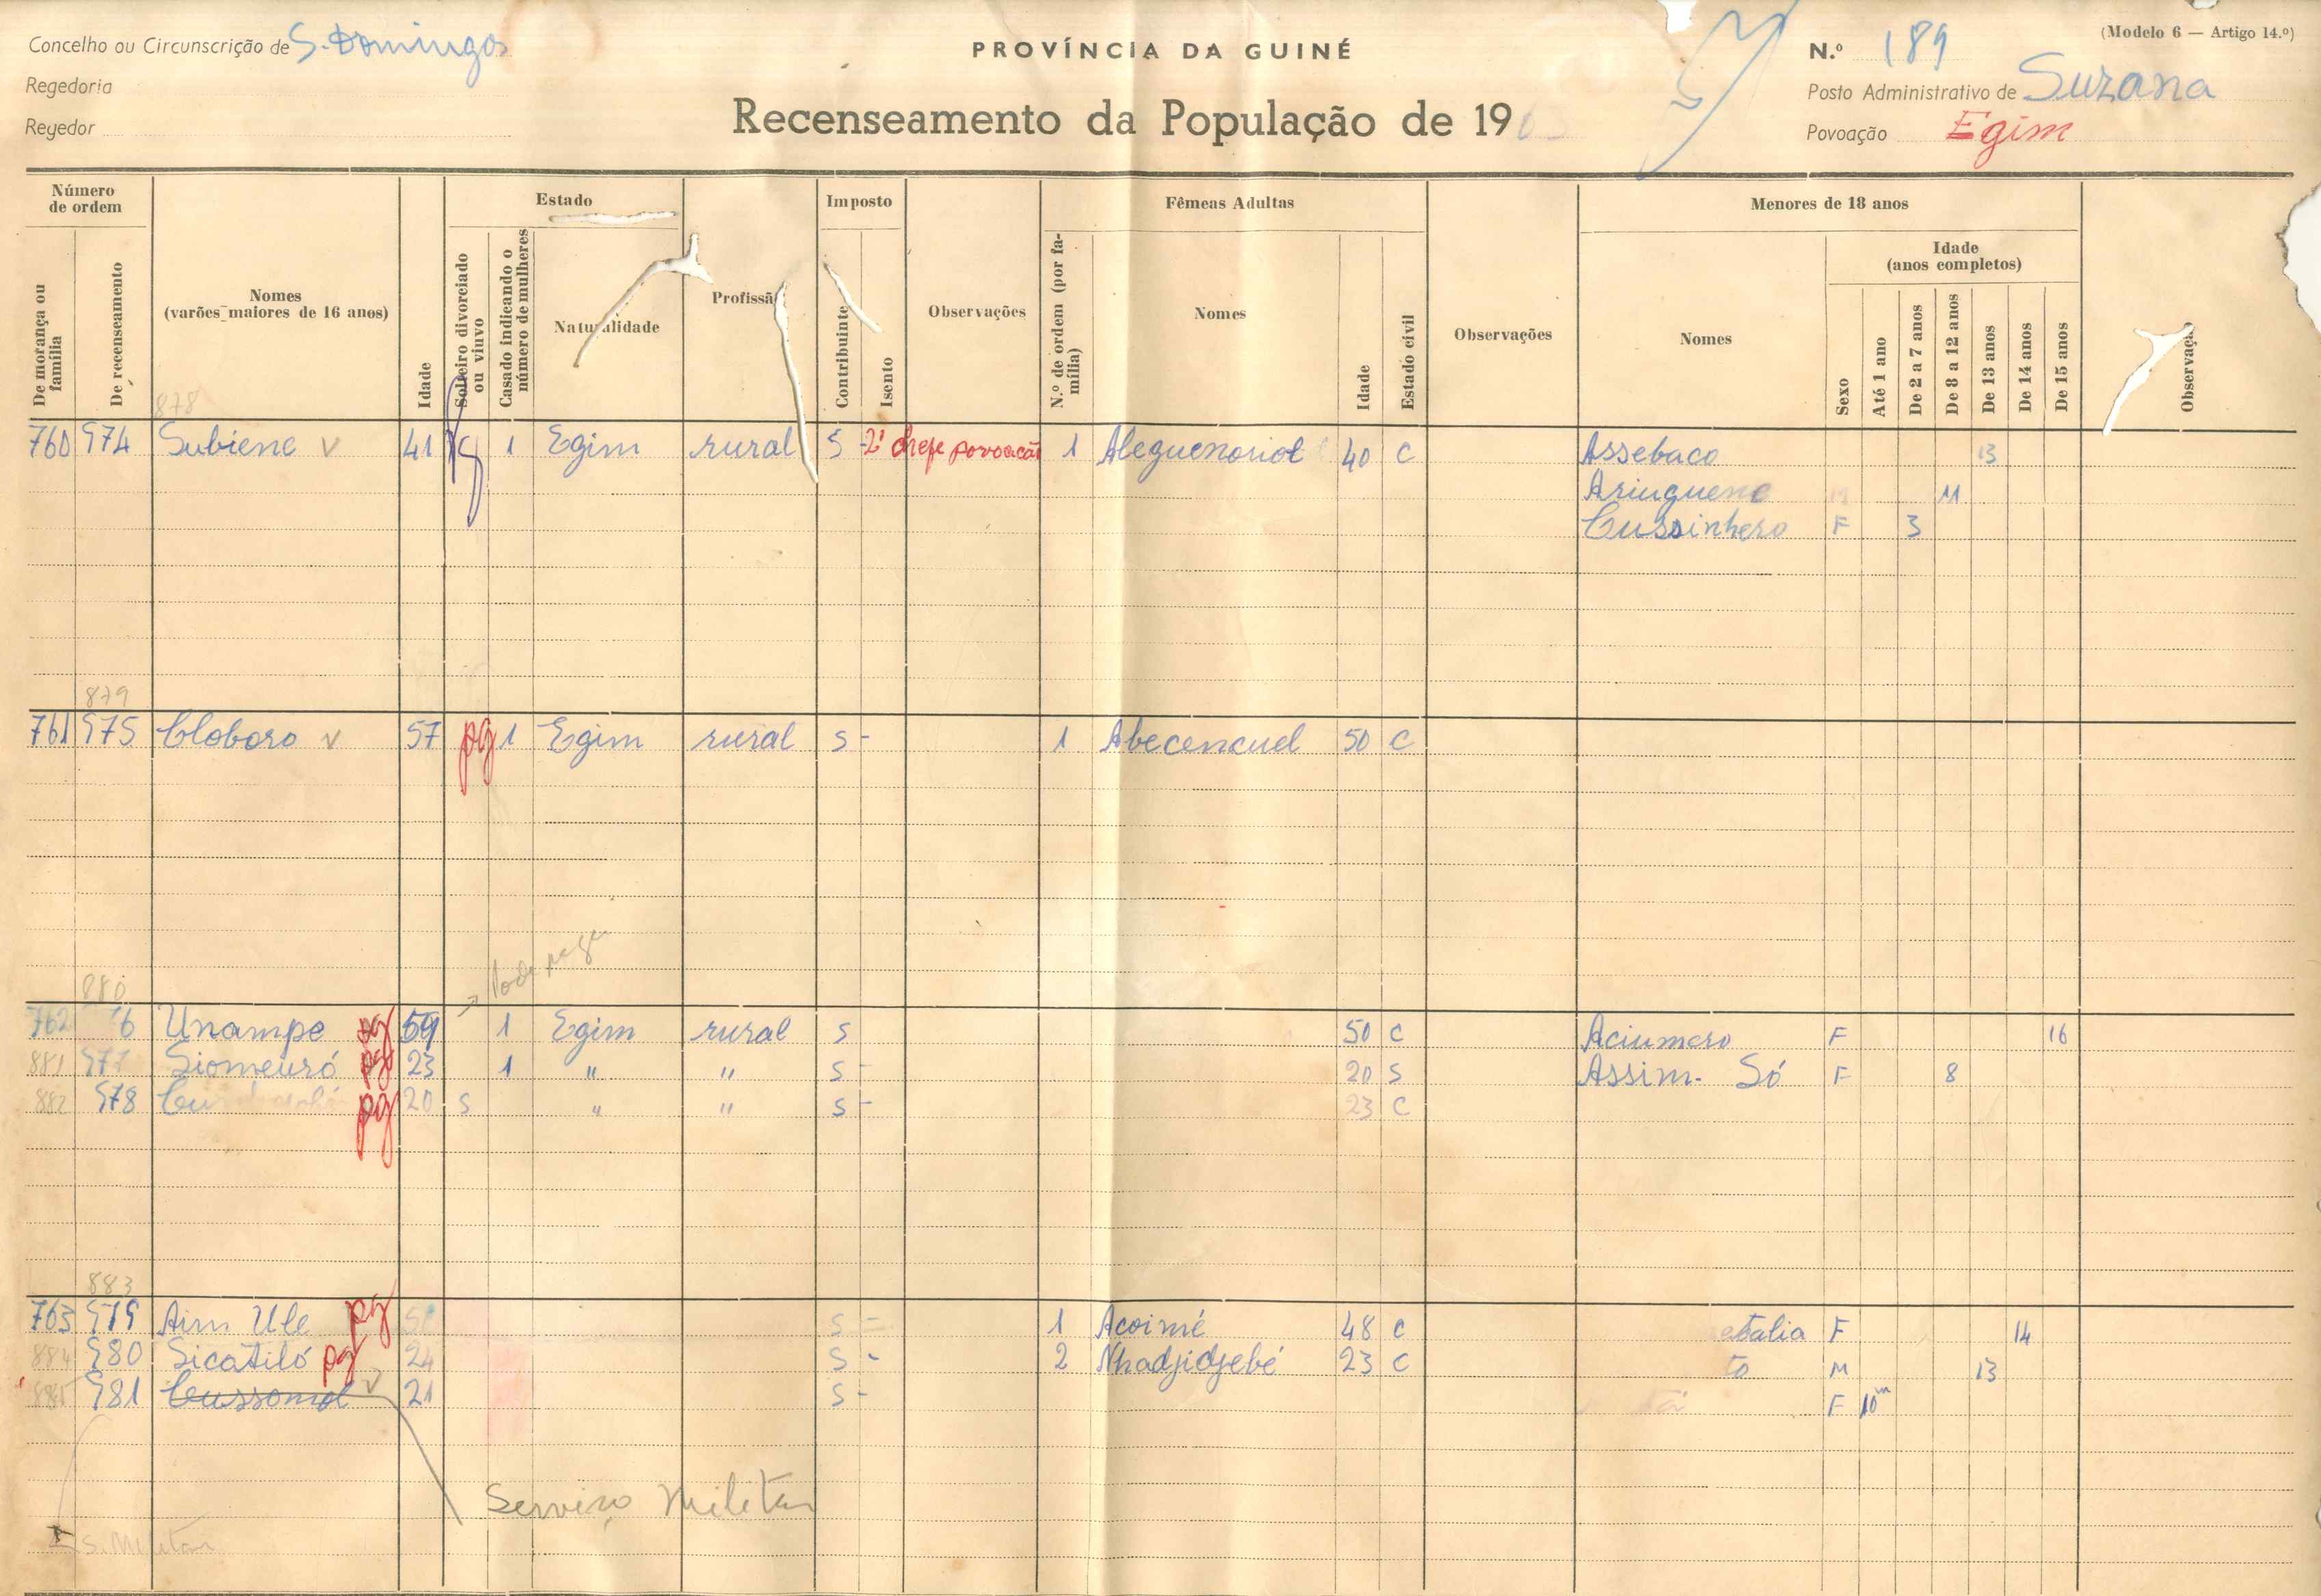 Concelho ou Circunscrição de S. Domingos
Regedoria
Regedor
PROVÍNCIA DA GUINÉ
Recenseamento da População de 19
(Modelo 6 — Artigo 14.º)
N.º 189
Posto Administrativo de Suzana
Povoação Egim
Número de ordem
De morança ou família
De recenseamento
Nomes
(varões maiores de 16 anos)
Idade
Estado
Solteiro divorciado ou viuvo
Casado indicando o número de mulheres
Naturalidade
Profissã
Imposto
Contribuinte
Isento
Observações
Fêmeas Adultas
N.º de ordem (por família)
Nomes
Idade
Estado civil
Observações
Menores de 18 anos
Nomes
Idade
(anos completos)
Sexo
Até 1 ano
De 2 a 7 anos
De 8 a 12 anos
De 13 anos
De 14 anos
De 15 anos
Observaç
878
760 974 Subiene v 41 1 Egim rural S - 2º chefe povoação 1 40 C Assebaco 13
Aringuene 11
Cussinhero F 3
879
761 975 Cloboro v 57 pg 1 Egim rural S - 1 Abecencuel 50 C
880
762 6 Unampe pg 59 1 Egim rural S 50 C Aciumero F 16
881 977 Siomeuró pg 23 1 " " S - 20 S Assim. Só F 8
882 978 pg 20 S " " S - 23 C
883
763 979 Aim Ule pg S - 1 Acoimé 48 C F 14
884 980 Sicatiló pg 24 S - 2 Nhadjidjebé 23 C M 13
885 981 Cussomol v 21 S - F 10 m
Serviço Militar
S. Militar